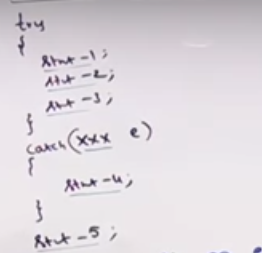 try
{
stmt-1;
stmt-2;
stmt-3;
}
catch(xxx e)
{
stmt-4;
}
stmt-5;